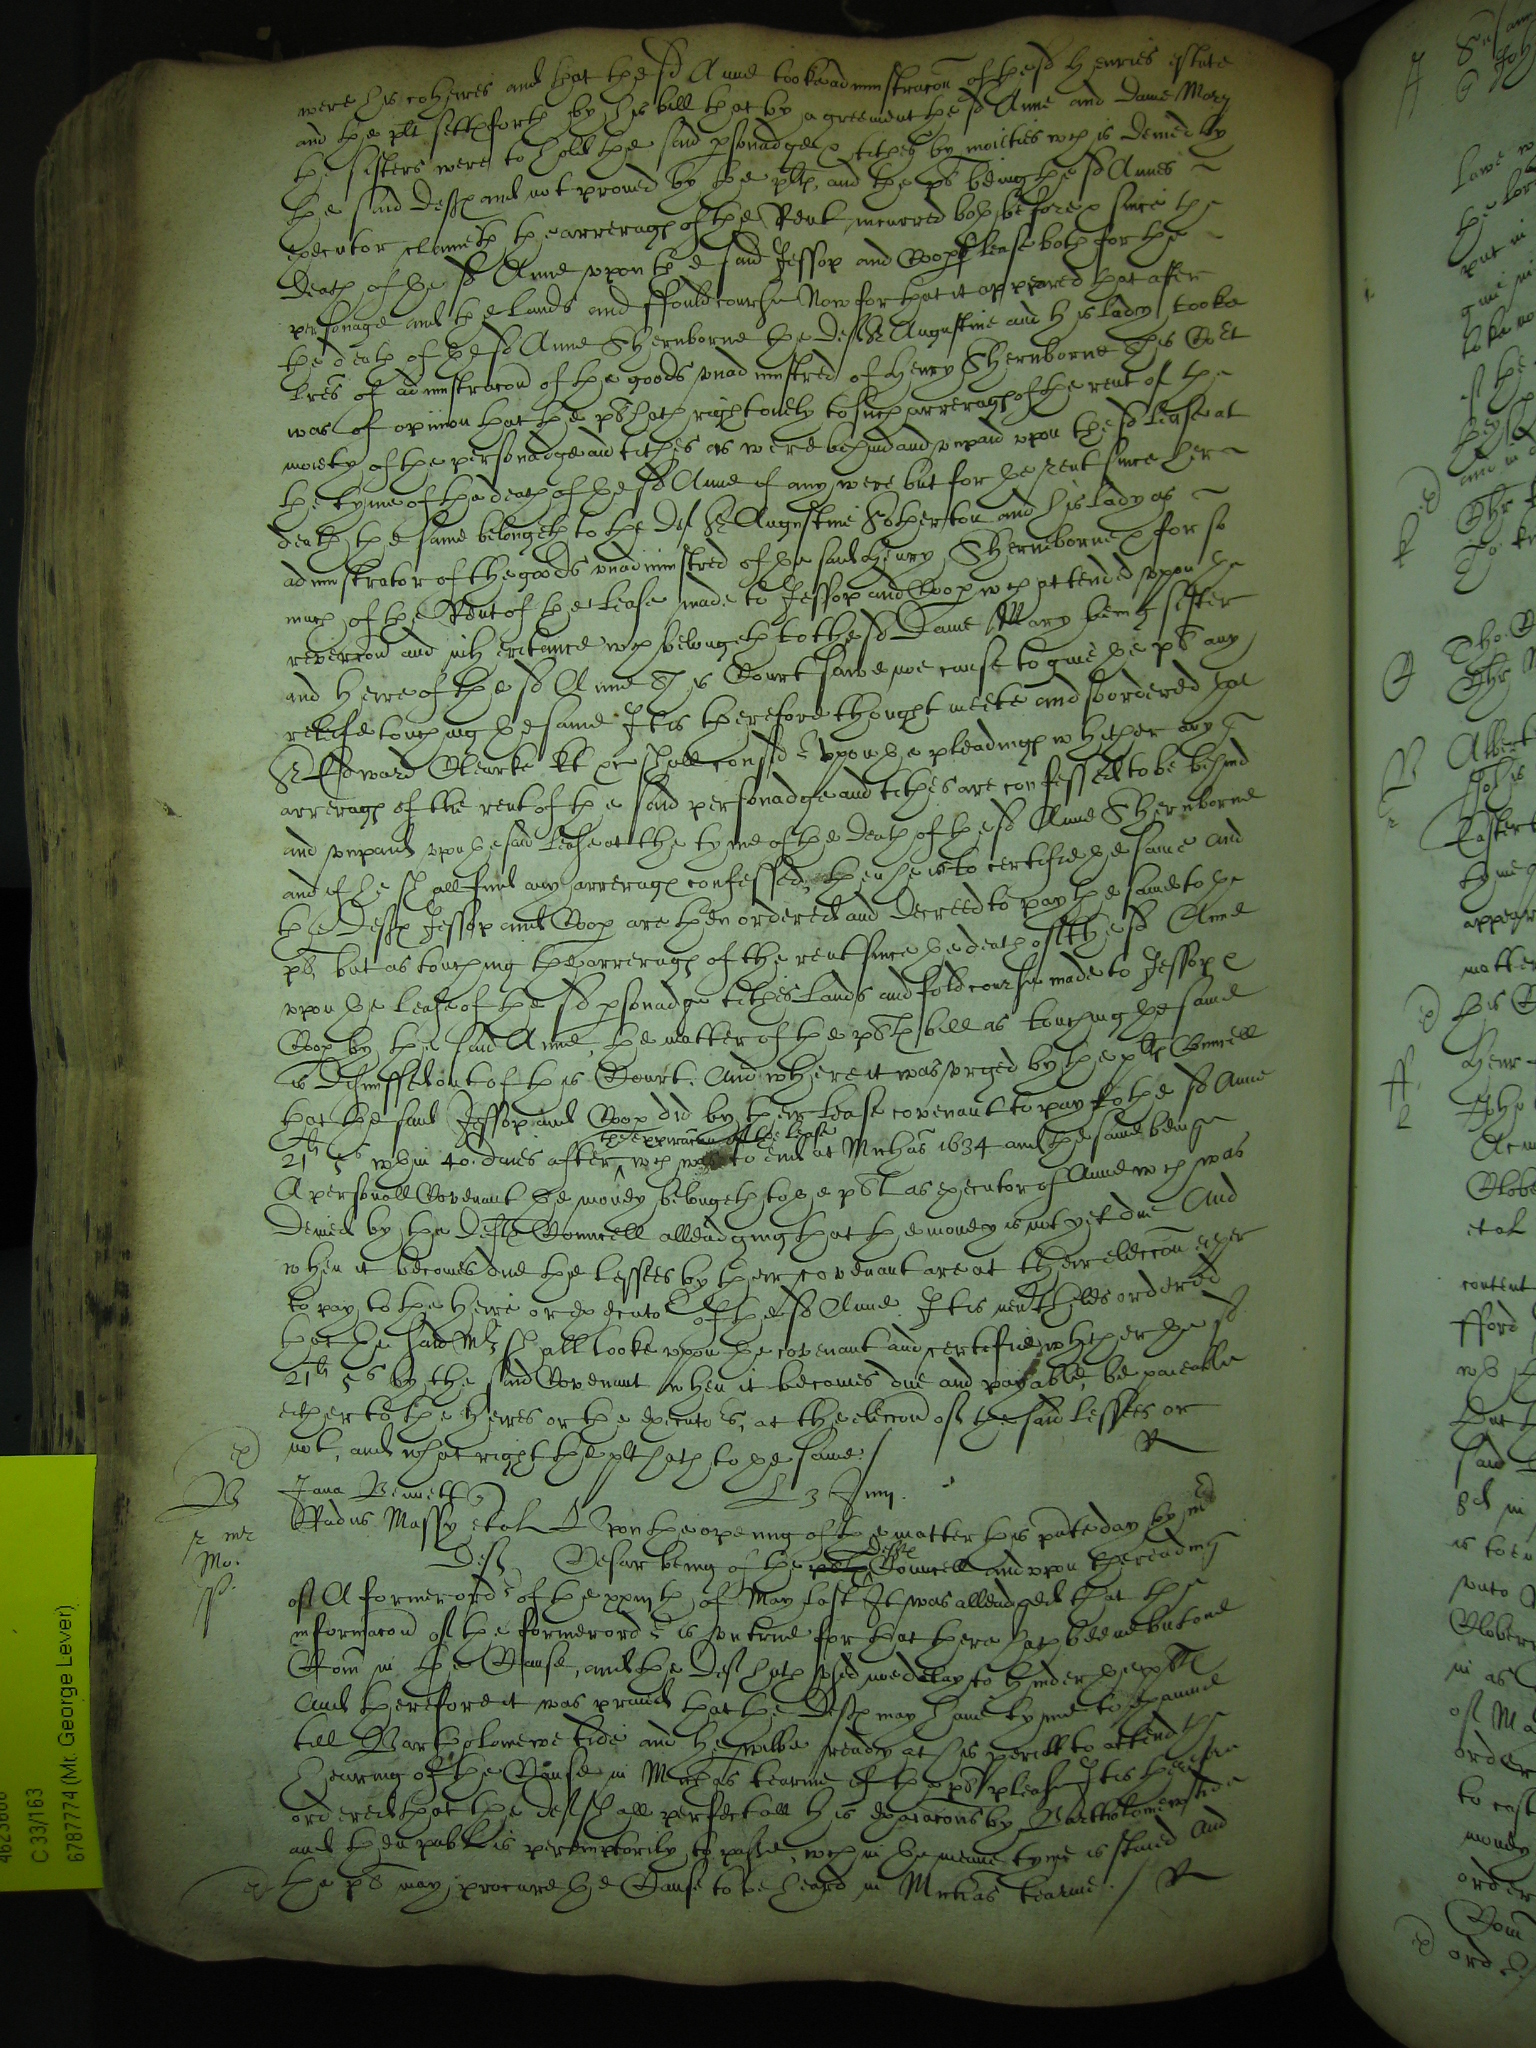 were his coheires and that the sd Anne tooke administracon of the sd Henries estate
and the plt setteth forth by his bill that by agreement the sd Anne and Dame Mary
the sisters were to hold the said psonadge & tithes by moieties wch is denied by
the said Defts and not proved by the plts, and the plt being the sd Annes
executor claimeth the arrerages of the Rent incurred both before & since the
death of the sd Anne upon the said Jessop and Coop lease both for the
personage and the lands and ffouldcourse Now for that it appeared that after
the death of the sd Anne Shernborne the Deft Sr Augustine and his lady tooke
lres of administracon of the goods unadministred of Henry Shernborne This Cort
was of opinion that the plt hath right onely to such arrerages of the rent of the
moiety of the personadge and tithes as were behind and unpaid upon the sd lease at
the tyme of the death of the sd Anne if any were but for the rent since her
death the same belongeth to the Deft Sr Augustine Sotherton and his lady as
administrator of the goods unadministred of the said Henry Shernborne & for so
much of the Rent of the lease made to Jessop and Coop wch attended upon the
revercon and inheritance wch belongeth to the sd Dame Mary being sister
and heire of the sd Anne This Court sawe noe cause to give the plt any
releife touching the same It is therefore thought meete and so ordered that
Sr Edward Clearke kt &c shall consider upon the pleadings whether any
arrerages of the rent of the said personadge and tithes are confessed to be behind
and unpaid upon the said lease at the tyme of the death of the sd Anne Shernborne
and if he shall find any arrerages confessed, then he is to certifie the same and
the Defts Jessop and Coop are then ordered and decreed to pay the same to the
plt but as touching the arrerages of the rent since the death of the sd Anne
upon the lease of the sd psonadge tithes lands and foldcourse made to Jessop &
Coop by the said Anne, the matter of the plts bill as touching the same
is dismissed out of this Court. And where it was urged by the plts Councell
that the said Jessop and Coop did by their lease covenant to pay to the sd Anne
21li 5s wthin 40. daies after the expiracon of the lease wch was to end at Michas 1634 and the same being
A personall Covenant the money belongeth to the plt as executor of Anne wch was
denied by the Defts Councell alleadging that the money is not yet due And
when it becomes due the lessees by their covenant are at their eleccon either
to pay to the heire or executor of the sd Anne. It is neverthelesse ordered
that the said Mr shall looke upon the covenant and certifie whether the sd
21li 5s by the said Covenant when it becomes due and payable, be paieable
either to the heires or the executors, at the eleccon of the said lessees or
not, and what right the plt hath to the same. / R
B
Jana Bennett
3 Junij.
Radus Massy et al Upon the opening of the matter this pnte day by mr
Deft Cesar being of the Defts Councell and upon the reading
of A former order of the xxiijth of May last It was alleadged that the
informacon of the former order is untrue for that there hath beene but one
Com in the Cause, and the Deft hath used noe delay to hinder the plt
And therefore it was praied that the Defts may have tyme to examine
till Bartholomewe tide and he wilbe ready at his perill to attend the
hearing of the Cause in Michas tearme if the plt please It is therefore
ordered that the deft shall perfect all his exacons by Bartholomewtide
and then publ is peremptorily to passe, wch in the meane tyme is staied And
the plt may procure the Cause to be heard in Michas tearme. / R
C 33/163
6787774 (Mr. George Lever)